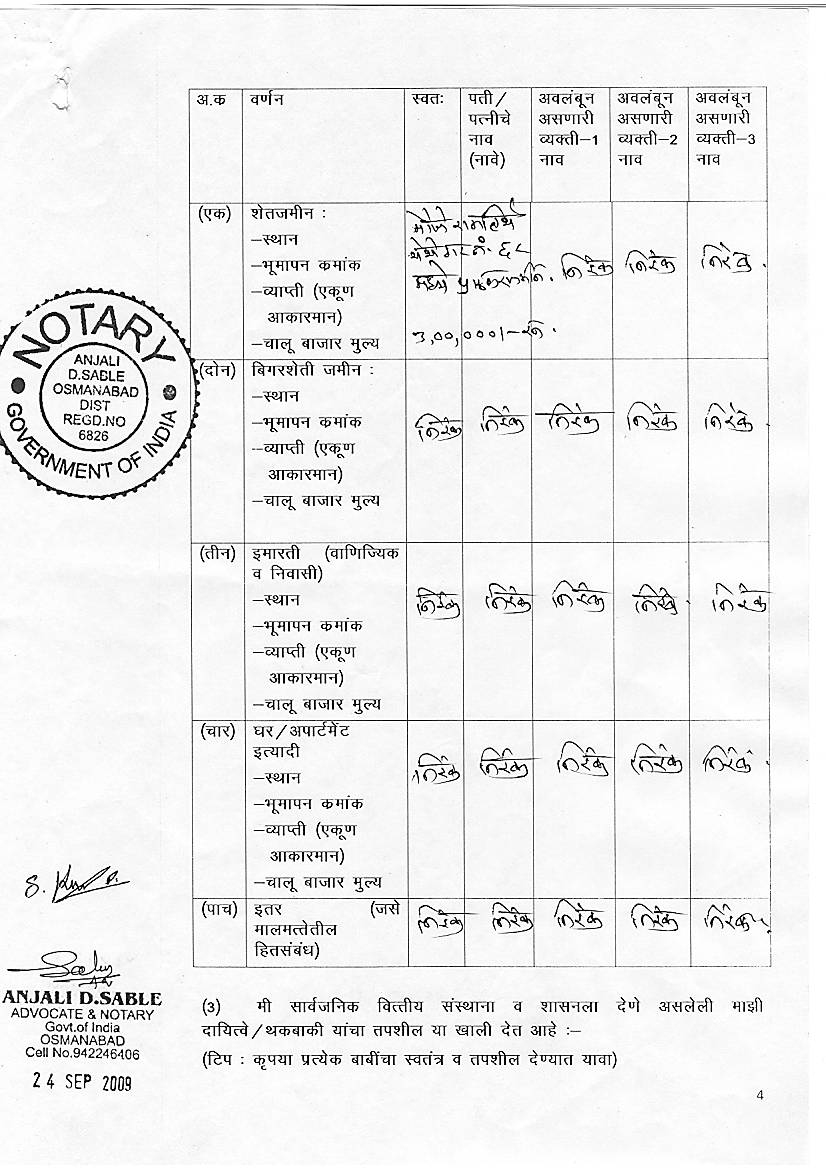 अ.क वर्णन स्वतः पती/ पत्नीचे नाव (नावे) अवलंबून असणारी व्यक्ती–1 नाव अवलंबून असणारी व्यक्ती–2 नाव अवलंबून असणारी व्यक्ती–3 नाव
(एक) शेतजमीन :
–स्थान
–भूमापन कमांक
–व्याप्ती (एकूण
आकारमान)
–चालू बाजार मुल्य
मौजे
३,००,०००/–रु.
निरंक निरंक निरंक
(दोन) बिगरशेती जमीन :
–स्थान
–भूमापन कमांक
–व्याप्ती (एकूण
आकारमान)
–चालू बाजार मुल्य
निरंक निरंक निरंक निरंक निरंक
(तीन) इमारती (वाणिज्यिक
व निवासी)
–स्थान
–भूमापन कमांक
–व्याप्ती (एकूण
आकारमान)
–चालू बाजार मुल्य
निरंक निरंक निरंक निरंक निरंक
(चार) घर/अपार्टमेंट
इत्यादी
–स्थान
–भूमापन कमांक
–व्याप्ती (एकूण
आकारमान)
–चालू बाजार मुल्य
निरंक निरंक निरंक निरंक निरंक
(पाच) इतर (जसे
मालमत्तेतील
हितसंबंध)
निरंक निरंक निरंक निरंक निरंक
NOTARY
ANJALI
D.SABLE
OSMANABAD
DIST
REGD.NO
6826
GOVERNMENT OF INDIA
ANJALI D.SABLE
ADVOCATE & NOTARY
Govt.of India
OSMANABAD
Cell No.942246406
24 SEP 2009
(3) मी सार्वजनिक वित्तीय संस्थाना व शासनला देणे असलेली माझी
दायित्वे/थकबाकी यांचा तपशील या खाली देत आहे :–
(टिप : कृपया प्रत्येक बाबींचा स्वतंत्र व तपशील देण्यात यावा)
4